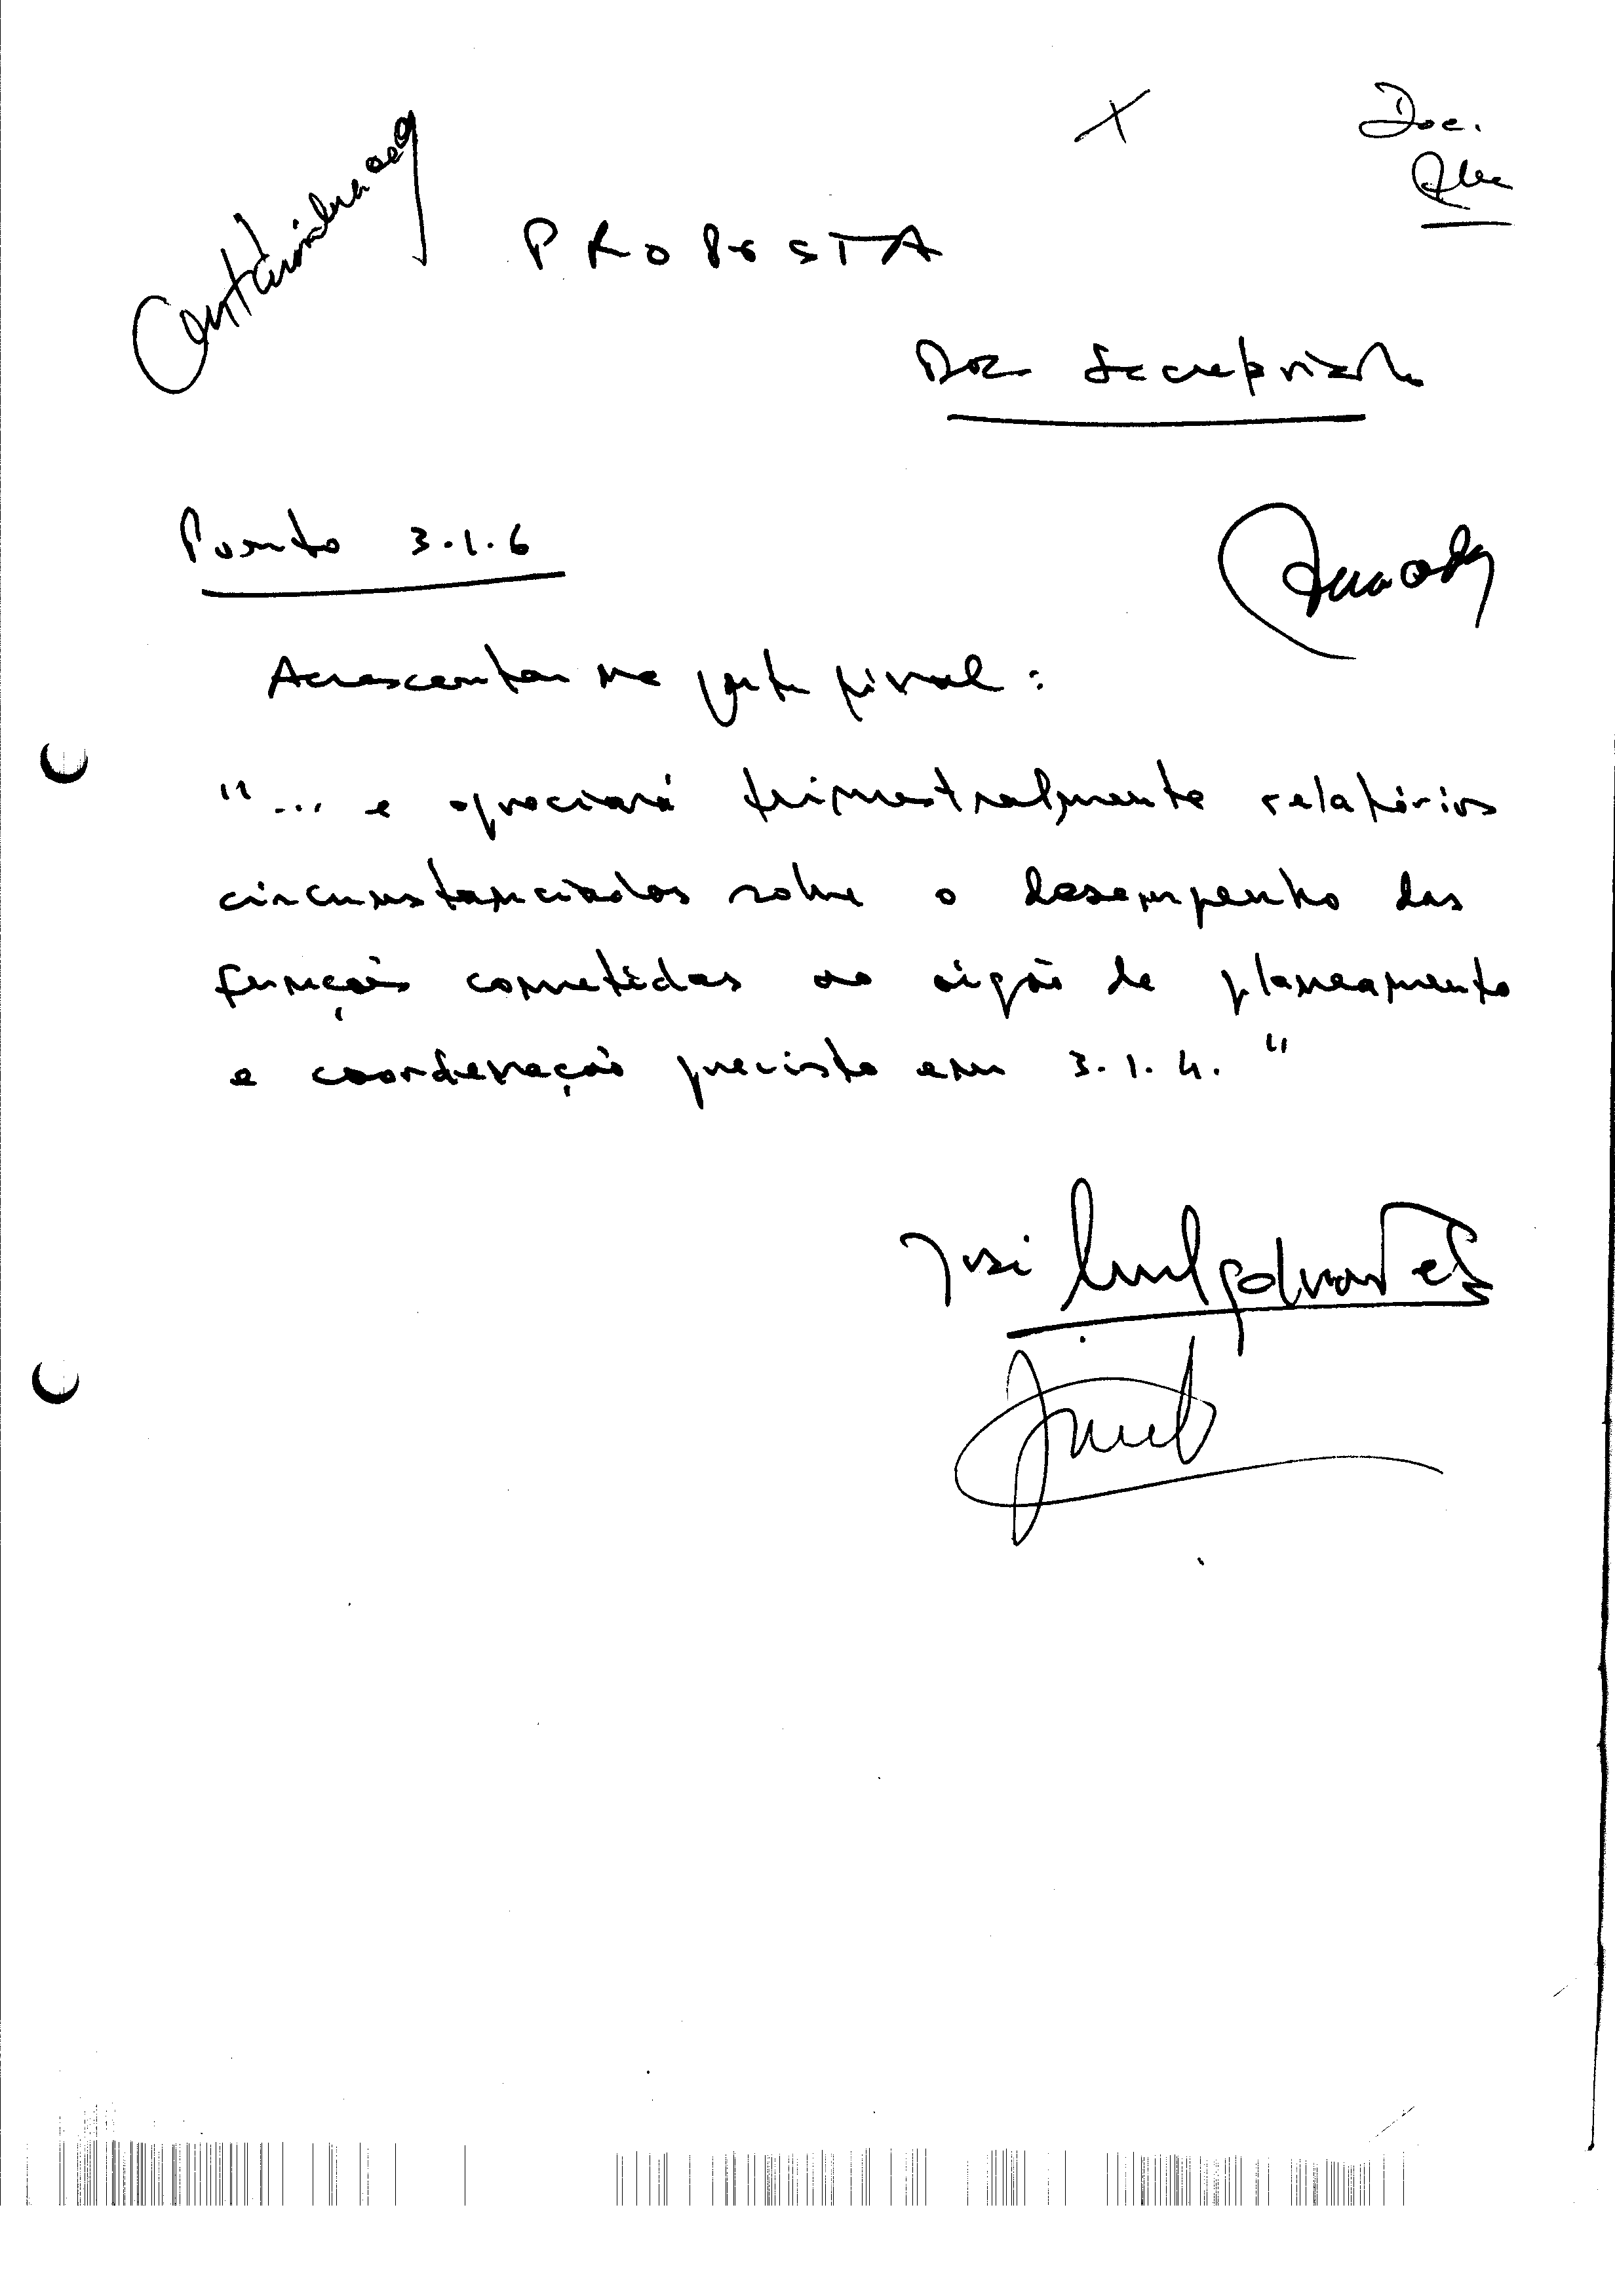 Doc.
PROPOSTA
Doc. Secretariado
Ponto 3.1.6
Acrescentar na parte final:
"... e apreciará trimestralmente relatórios
circunstanciados sobre o desempenho das
funções cometidas ao órgão de planeamento
e coordenação previsto em 3.1.4."
José